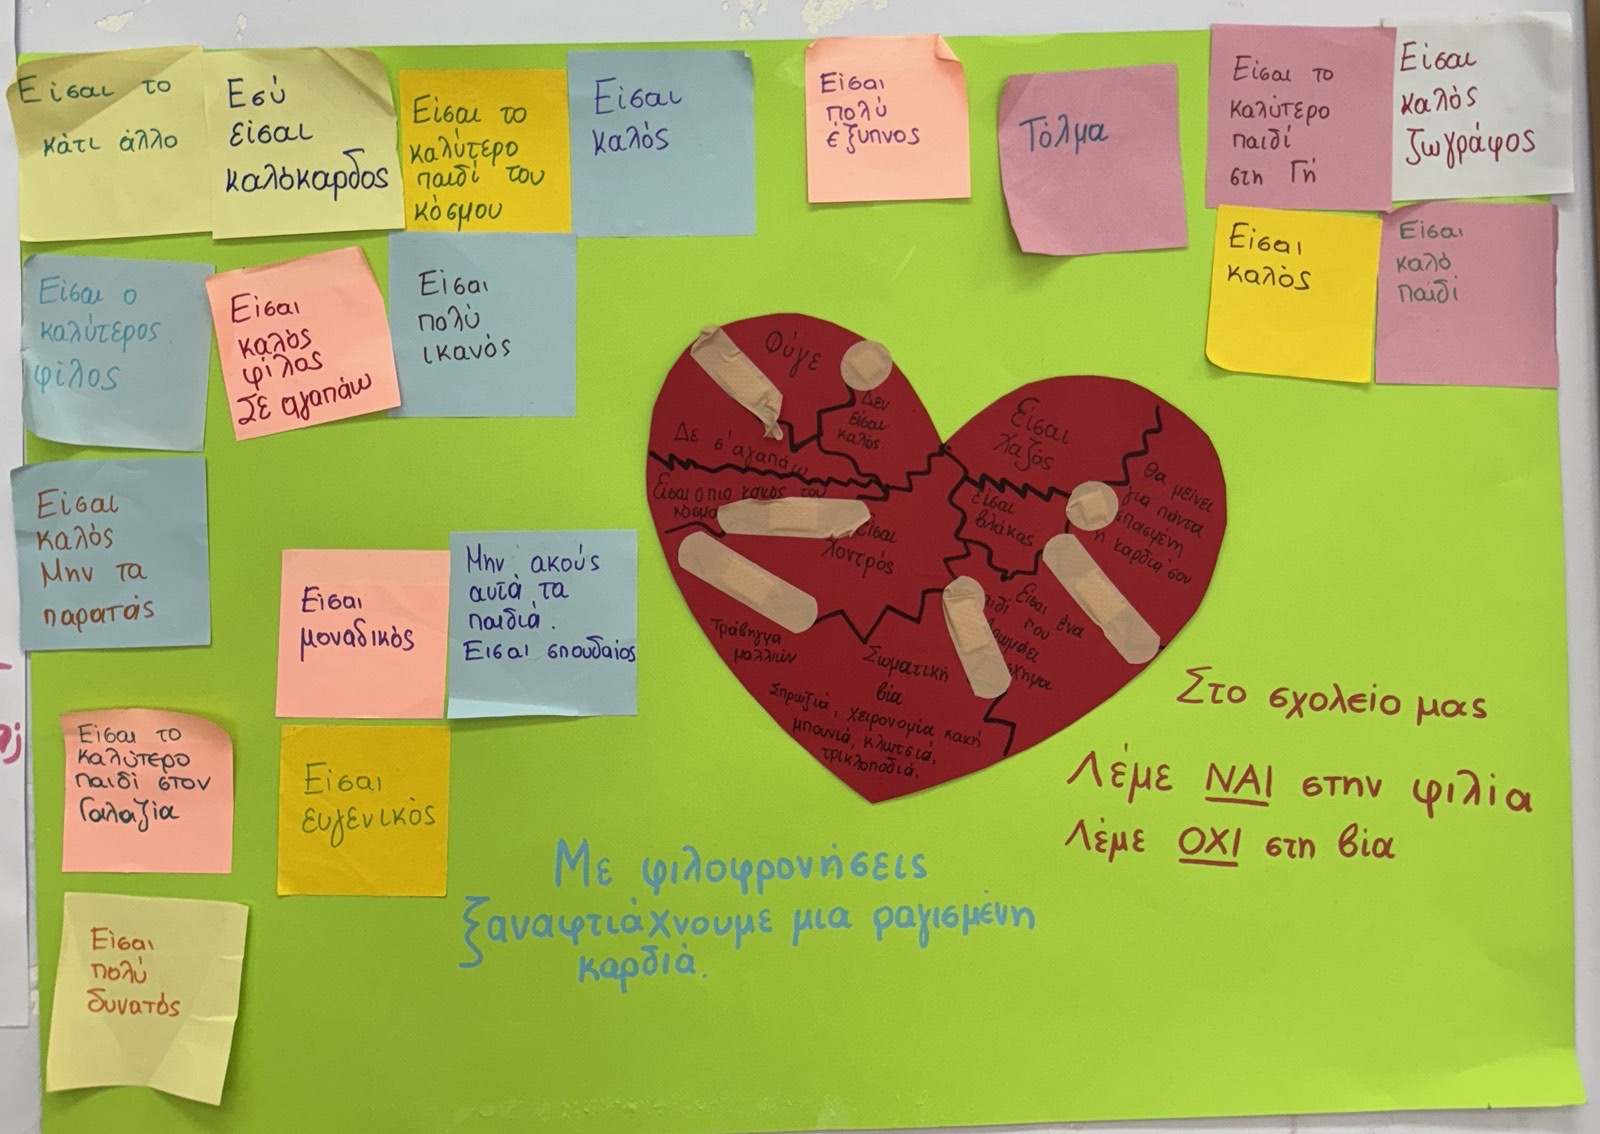 Είσαι το
κάτι άλλο
Εσύ
είσαι
καλόκαρδος
Είσαι το
καλύτερο
παιδί του
κόσμου
Είσαι
καλός
Είσαι
πολύ
έξυπνος
Τόλμα
Είσαι το
καλύτερο
παιδί
στη Γή
Είσαι
καλός
ζωγράφος
Είσαι
καλός
Είσαι
καλό
παιδί
Είσαι ο
καλύτερος
φίλος
Είσαι
καλός
φίλος
Σε αγαπάω
Είσαι
πολύ
ικανός
Είσαι
καλός
Μην τα
παρατάς
Είσαι
μοναδικός
Μην ακούς
αυτά τα
παιδιά.
Είσαι σπουδαίος
Είσαι το
καλύτερο
παιδί στον
Γαλαξία
Είσαι
ευγενικός
Είσαι
πολύ
δυνατός
Φύγε
Δεν
είσαι
καλός
Δε σ'αγαπάω
Είσαι
χαζός
Θα μείνει
για πάντα
σπασμένη
η καρδιά σου
Είσαι ο πιο κακός του
κόσμου
Είσαι
χοντρός
είσαι
βλάκας
Τράβηγμα
μαλλιών
Σωματική
βία
Σπρωξιά, χειρονομία κακή
μπουνιά, κλωτσιά,
τρικλοποδιά,
Είσαι ένα
που
Στο σχολείο μας
Λέμε ΝΑΙ στην φιλία
Λέμε ΟΧΙ στη βία
Με φιλοφρονήσεις
ξαναφτιάχνουμε μια ραγισμένη
καρδιά.